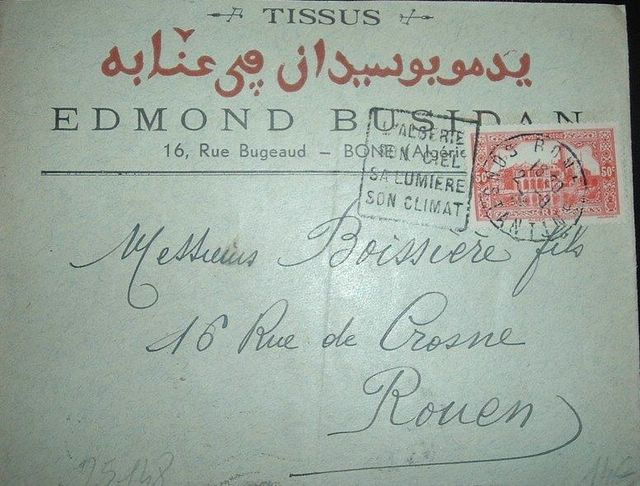 TISSUS
يدمو بوسيدان ڥي عنّابه
EDMOND BUSIDAN
16, Rue Bugeaud – BONE (Algérie
L'ALGERIE
SON CIEL
SA LUMIERE
SON CLIMAT
50c 50c
BONE
CONSTANTINE
Messieurs Boissière fils
16 Rue de Crosne
Rouen